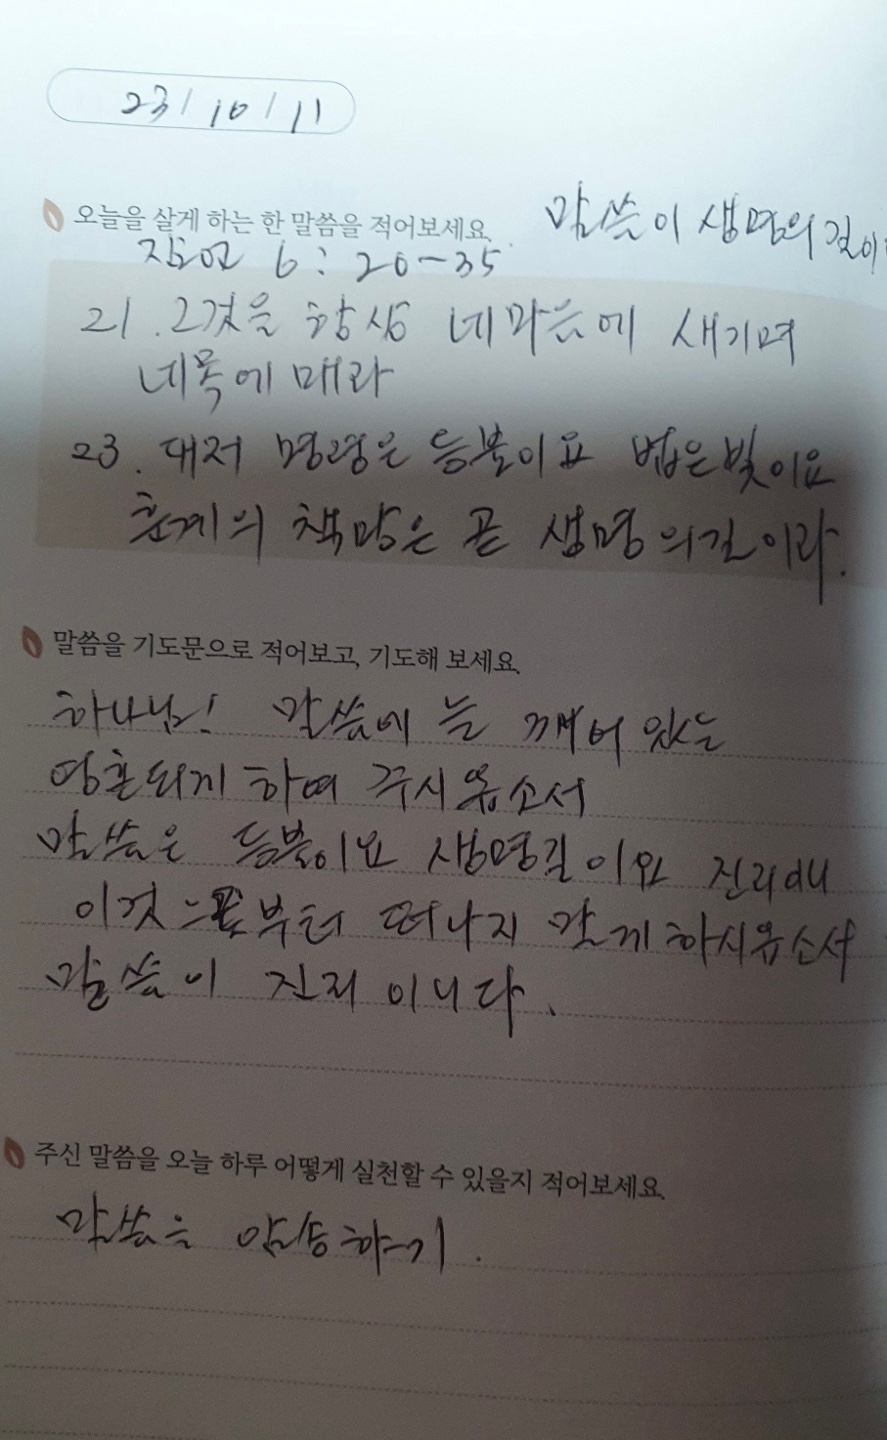 23/10/11
오늘을 살게 하는 한 말씀을 적어보세요. 말씀이 생명의 길이
잠언 6: 20-35
21. 그것을 항상 네 마음에 새기며
네 목에 매라
23. 대저 명령은 등불이요 법은 빛이요
훈계의 책망은 곧 생명의 길이라.
말씀을 기도문으로 적어보고, 기도해 보세요.
하나님! 말씀에 늘 깨어 있는
영혼되게 하여 주시옵소서
말씀은 등불이요 생명길이요 진리
이것 부터 떠나지 않게 하시옵소서
말씀이 진리 이니다.
주신 말씀을 오늘 하루 어떻게 실천할 수 있을지 적어보세요.
말씀을 암송하기.